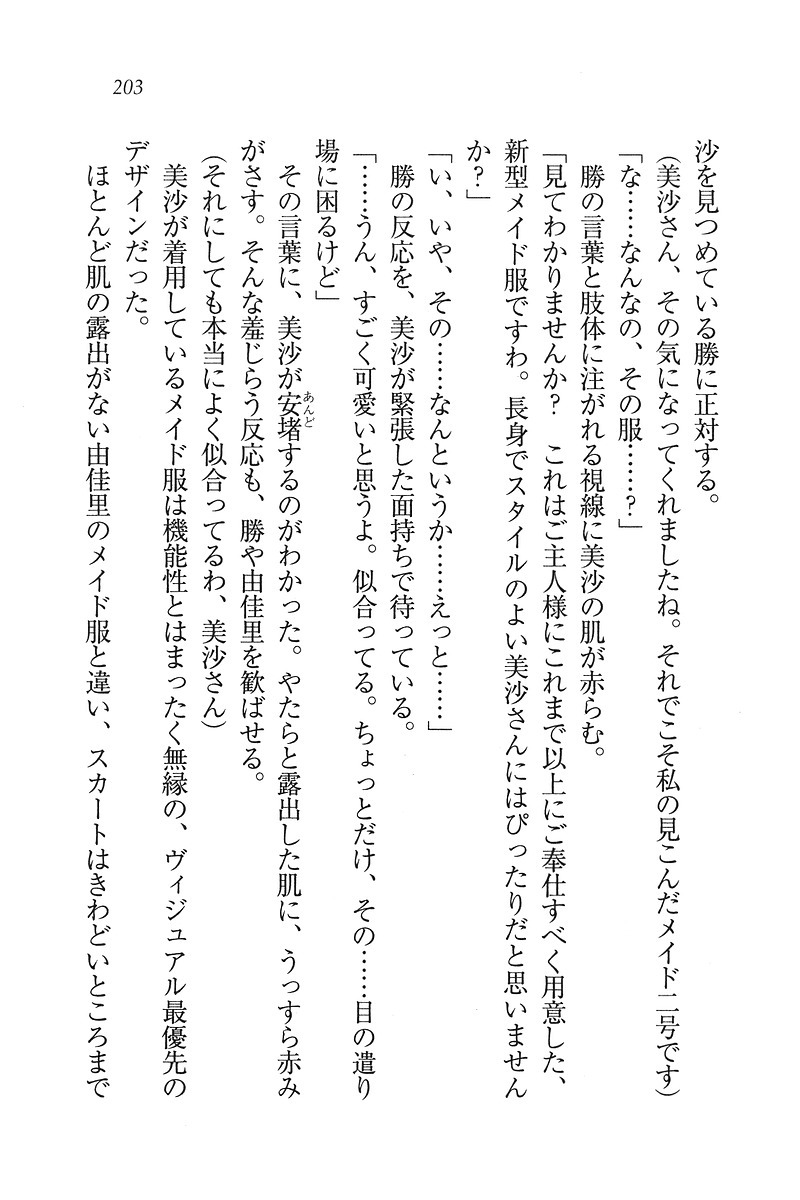 203
沙を見つめている勝に正対する。
(美沙さん、その気になってくれましたね。それでこそ私の見こんだメイド二号です)
「な……なんなの、その服……?」
勝の言葉と肢体に注がれる視線に美沙の肌が赤らむ。
「見てわかりませんか?　これはご主人様にこれまで以上にご奉仕すべく用意した、
新型メイド服ですわ。長身でスタイルのよい美沙さんにはぴったりだと思いません
か?」
「い、いや、その……なんというか……えっと……」
勝の反応を、美沙が緊張した面持ちで待っている。
「……うん、すごく可愛いと思うよ。似合ってる。ちょっとだけ、その……目の遣り
場に困るけど」
その言葉に、美沙が安堵するのがわかった。やたらと露出した肌に、うっすら赤み
あんど
がさす。そんな羞じらう反応も、勝や由佳里を歓ばせる。
(それにしても本当によく似合ってるわ、美沙さん)
美沙が着用しているメイド服は機能性とはまったく無縁の、ヴィジュアル最優先の
デザインだった。
ほとんど肌の露出がない由佳里のメイド服と違い、スカートはきわどいところまで